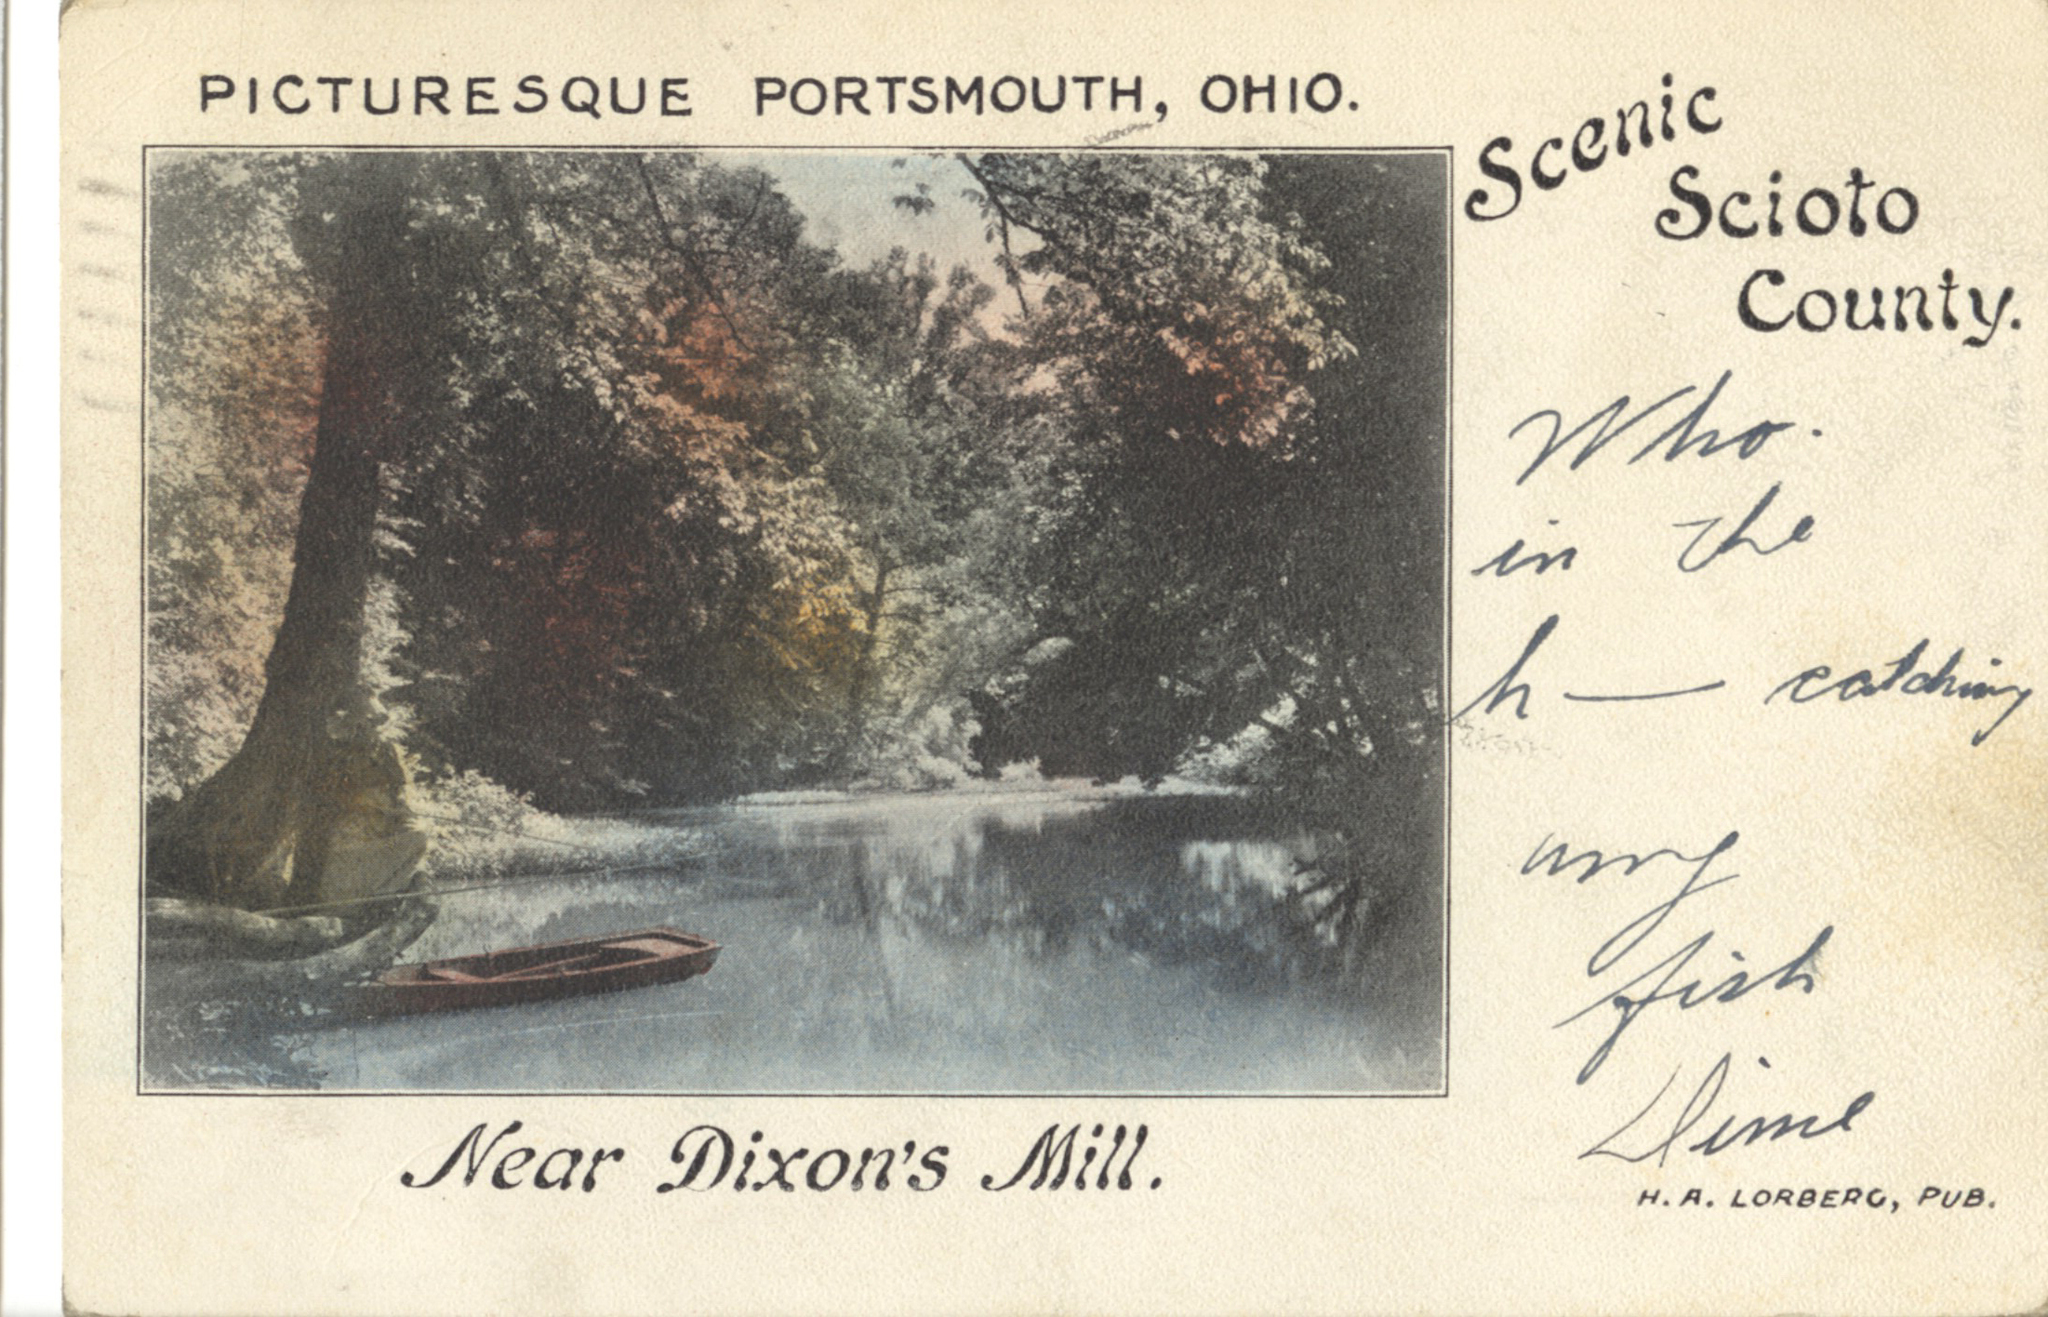 PICTURESQUE PORTSMOUTH, OHIO.
Scenic
Scioto
County.
Who.
in the
h— catching
my
fish
Dime
Near Dixon's Mill.
H. A. LORBERG, PUB.